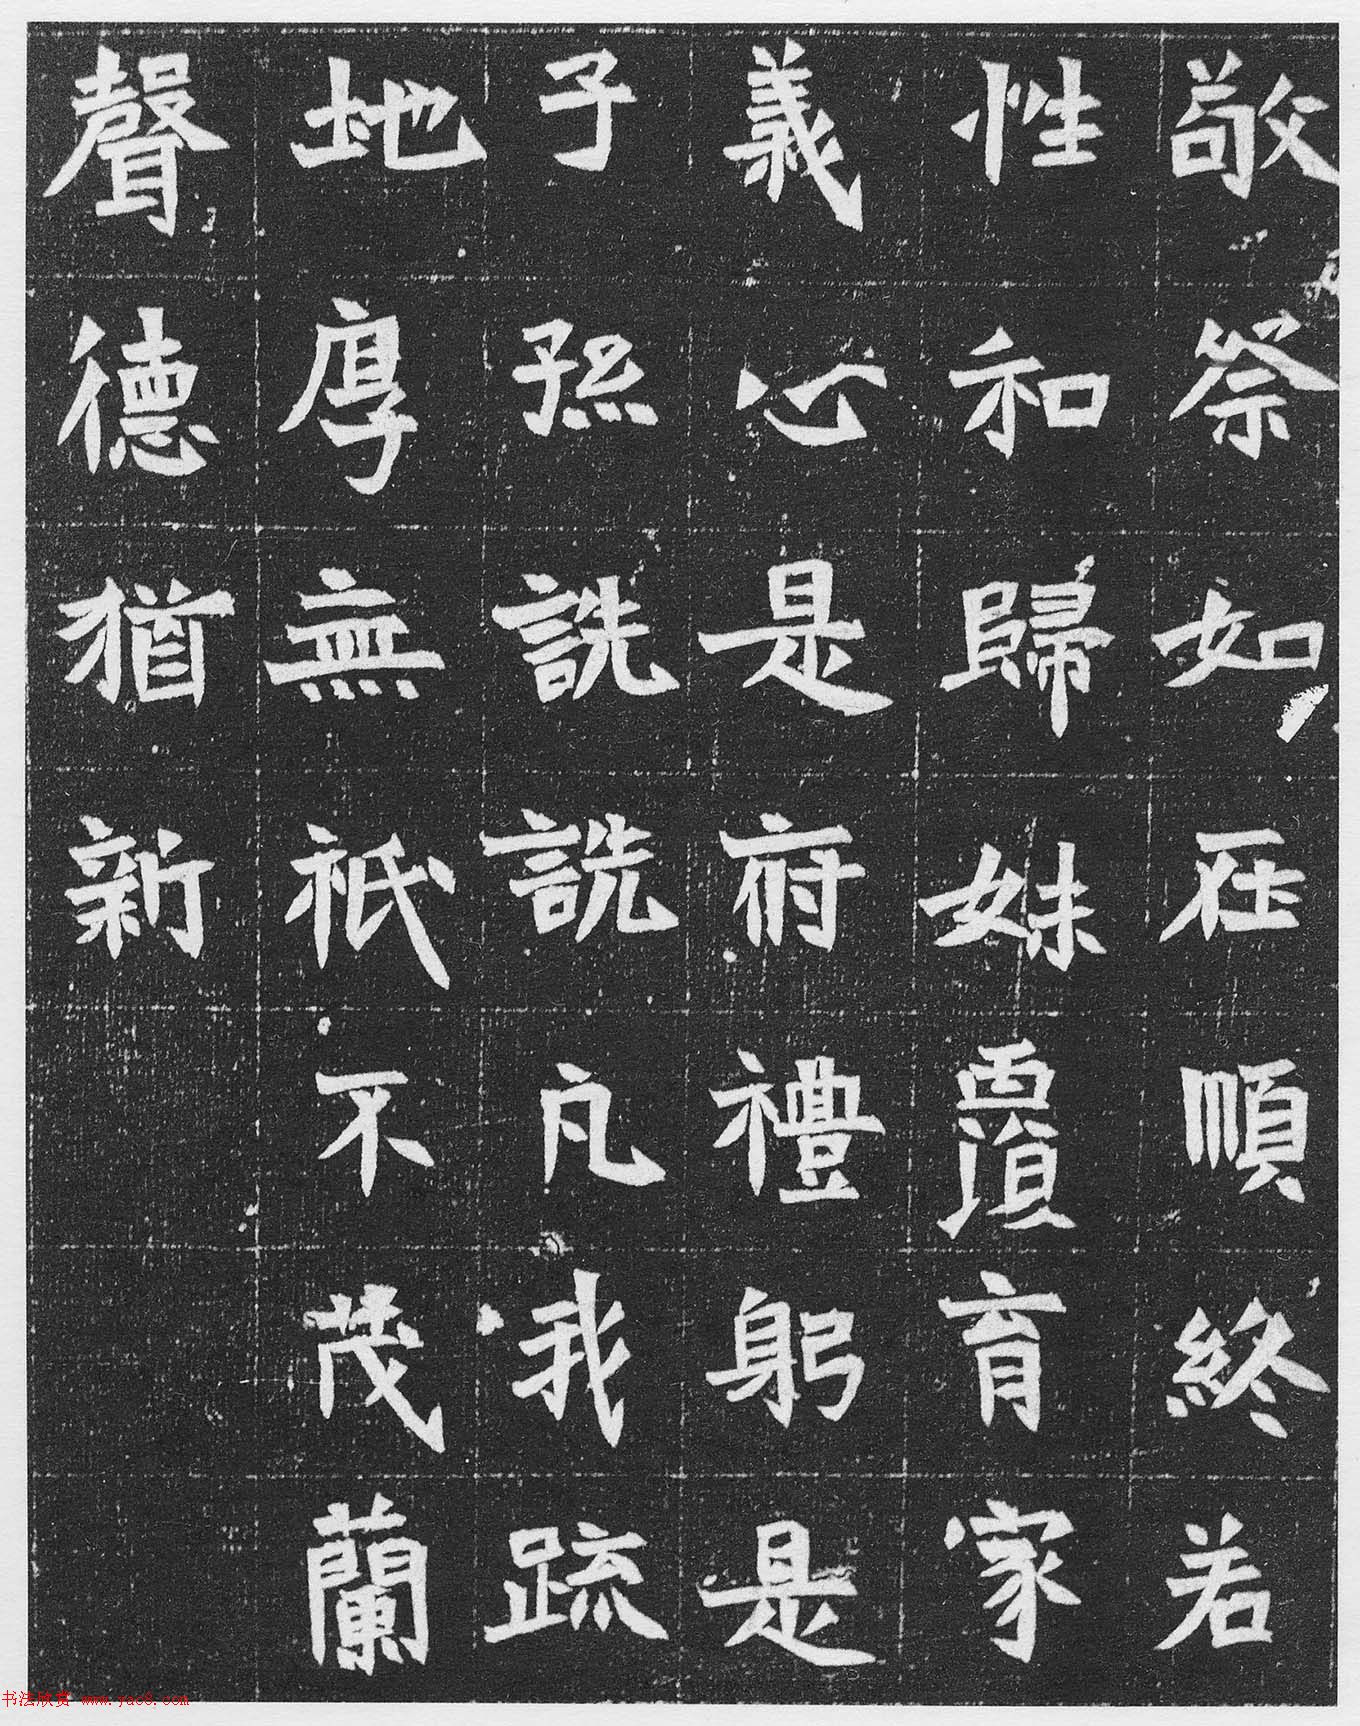 敬祭如在順終若
性和歸妹賈頊育家
義心是府禮躬是
子孫詵詵凡我疏
地厚無祇不茂蘭
聲德猶新
书法欣赏 www.yac8.com